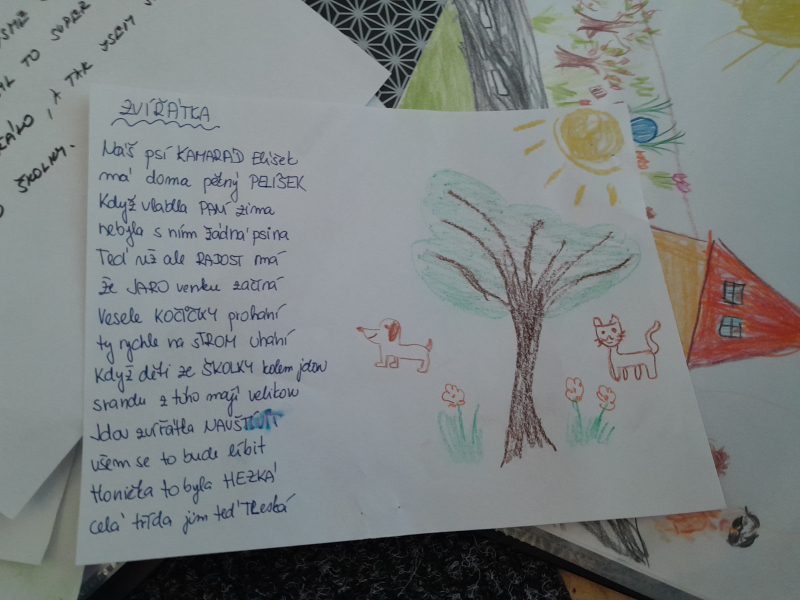 ZVÍŘÁTKA
Náš psí KAMARÁD Elíšek
má doma pěkný PELÍŠEK
Když vládla PANÍ zima
nebyla s ním žádná psina
Teď už ale RADOST má
že JARO venku začíná
Vesele KOČIČKY prohání
ty rychle na STROM uhání
Když děti ze ŠKOLKY kolem jdou
srandu z toho mají velikou
Jdou zvířátka NAVŠTÍVIT
všem se to bude líbit
Honička to byla HEZKÁ
celá třída jim teď tleská
TO SUPER
, A TAK JSEM
ŠKOLKY.